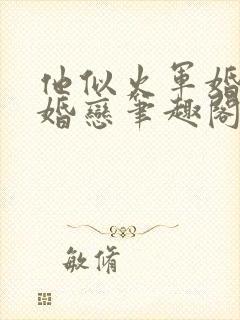 他似火軍婚
婚戀筆趣閣
敏脩